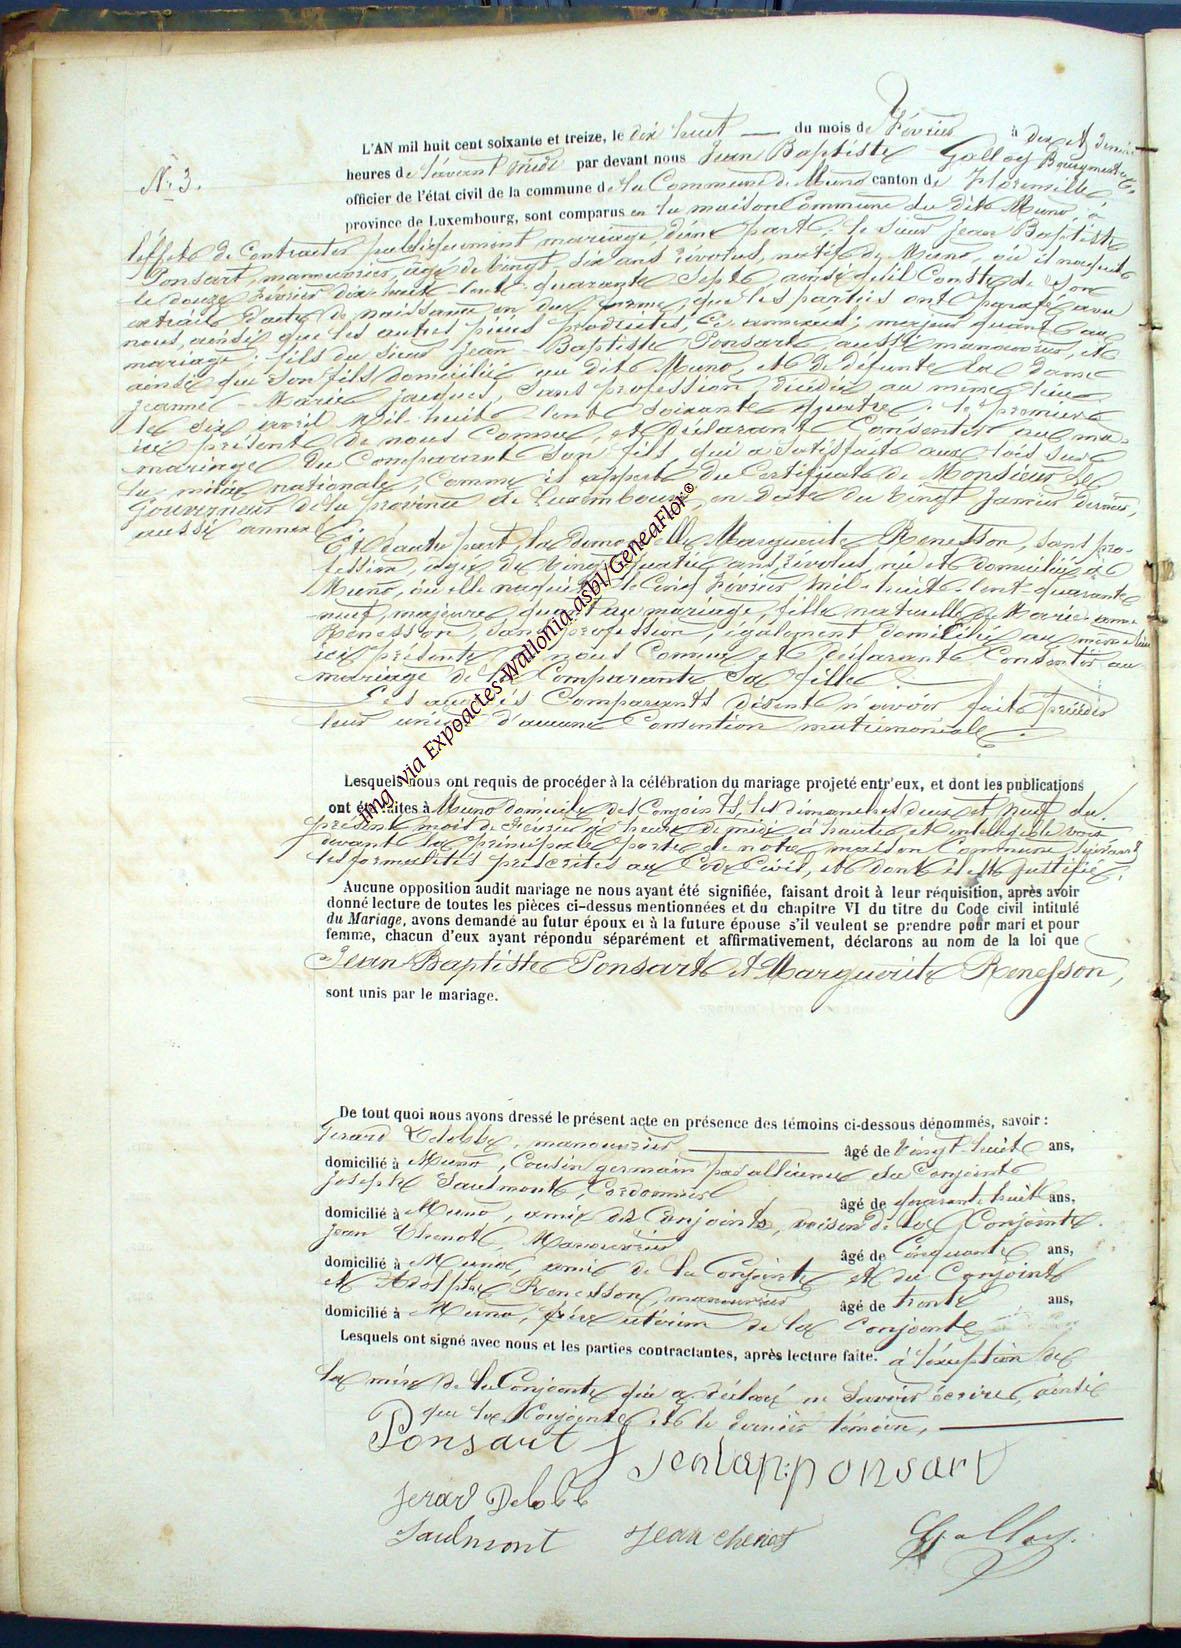 N° 3.
L'AN mil huit cent soixante et treize, le dix huit du mois de Février à dix et demie
heures de l'avant midi par devant nous Jean Baptiste Galloy Bourgmestre
officier de l'état civil de la commune de la Commune de Muno canton de Florenville
province de Luxembourg, sont comparus en la maison Commune du dit Muno, à
l'effet de Contracter publiquement mariage, d'une part: le sieur Jean Baptiste
Ponsart, manouvrier, agé de vingt six ans révolus, natif de Muno, où il naquit
le douze Février dix huit cent quarante sept, ainsi qu'il Conste de son
extrait d'acte de naissance en due forme, que les parties ont parafé avec
nous, ainsi que les autres pièces produites, ci annexées; majeur quant au
mariage; fils du sieur Jean-Baptiste Ponsart, aussi manouvrier, et
ainsi que son fils domicilié au dit Muno, et de défunte la dame
Jeanne-Marie Jacques, sans profession, décédée au même lieu
le six avril mil huit cent soixante quatre. le premier
ici présent, de nous Connu, et déclarant Consentir au ma-
mariage du Comparant son fils, qui a satisfait aux lois sur
la milice nationale, Comme il appert du Certificat de Monsieur le
Gouverneur de la province de Luxembourg, en date du vingt Janvier dernier,
aussi annexé.
Et d'autre part, la Demoiselle Marguerite Renesson, sans pro-
fession, agée de vingt quatre ans révolus, née et domiciliée à
Muno, où elle naquit le Cinq Février mil huit cent quarante
neuf, majeure quant au mariage, fille naturelle de Marie anne
Renesson, sans profession, également domiciliée au même lieu
ici présente, de nous Connue et déclarant Consentir au
mariage de la Comparante sa fille.
Les Comparants disent n'avoir fait précéder
leur union d'aucune Convention matrimoniale.
Lesquels nous ont requis de procéder à la célébration du mariage projeté entr'eux, et dont les publications
ont été faites à Muno domicile des Conjoints, les dimanches deux et neuf du
présent mois de Février à heure de midi à haute et intelligible voix
devant la principale porte de notre maison Commune, suivant
les formalités prescrites au Code Civil, et dont il est justifié.
Aucune opposition audit mariage ne nous ayant été signifiée, faisant droit à leur réquisition, après avoir
donné lecture de toutes les pièces ci-dessus mentionnées et du chapitre VI du titre du Code civil intitulé
du Mariage, avons demandé au futur époux et à la future épouse s'il veulent se prendre pour mari et pour
femme, chacun d'eux ayant répondu séparément et affirmativement, déclarons au nom de la loi que
Jean Baptiste Ponsart et Marguerite Renesson,
sont unis par le mariage.
De tout quoi nous avons dressé le présent acte en présence des témoins ci-dessous dénommés, savoir :
Gerard Delobbe, manouvrier âgé de vingt-huit ans,
domicilié à Muno, Cousin germain par alliance du Conjoint
Joseph Saulmont, Cordonnier âgé de quarante huit ans,
domicilié à Muno, ami des Conjoints, voisin de la Conjointe.
Jean Chenot, Manouvrier âgé de Cinquante ans,
domicilié à Muno, ami de la Conjointe et du Conjoint
et Adolphe Renesson, manouvrier âgé de trente ans,
domicilié à Muno, frère utérin de la Conjointe
Lesquels ont signé avec nous et les parties contractantes, après lecture faite. à l'exception de
la mère de la Conjointe qui a déclaré ne savoir écrire, ainsi
que la Conjointe et le dernier témoin,
Ponsart Jenbap:ponsart
Jerard Delobbe
Saulmont Jean chenot Galloy.
Img via Expoactes-Wallonia-asbl/GeneaFlor®